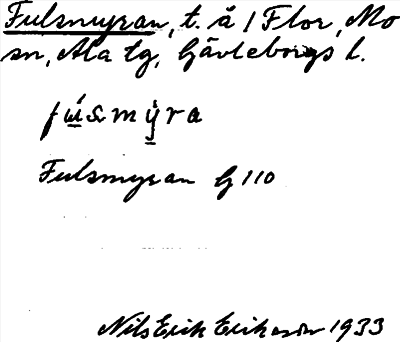 Fulsmyran, t. å / Flor, Mo
sn, Ala tg, Gävleborgs l.
fúsmỳra
Fulsmyran G 110
Nils Erik Eriksson 1933